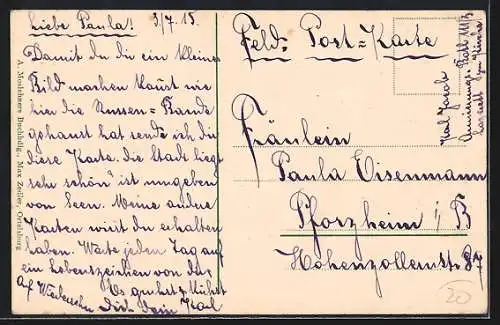 Liebe Paula! 3/7.15.
Damit du dir ein kleines
Bild machen kanst wie
hier die Russen = Bande
gehaust hat sende ich dir
diese Karte. die Stadt liegt
sehr schön ist umgeben
von Seen. Meine andre
Karten wirst du erhalten
haben. Warte jeden Tag auf
ein Lebenszeichen von dir
Es grüßt & küßt
Auf Wiedersehn Dich dein Karl
A. Mühlehners Buchhdlg., Max Zedler, Ortelsburg
Feld = Post = Karte
Karl Jacob
Fräulein
Paula Eisenmann
Pforzheim i/B
Hohenzollernstr. 87
20